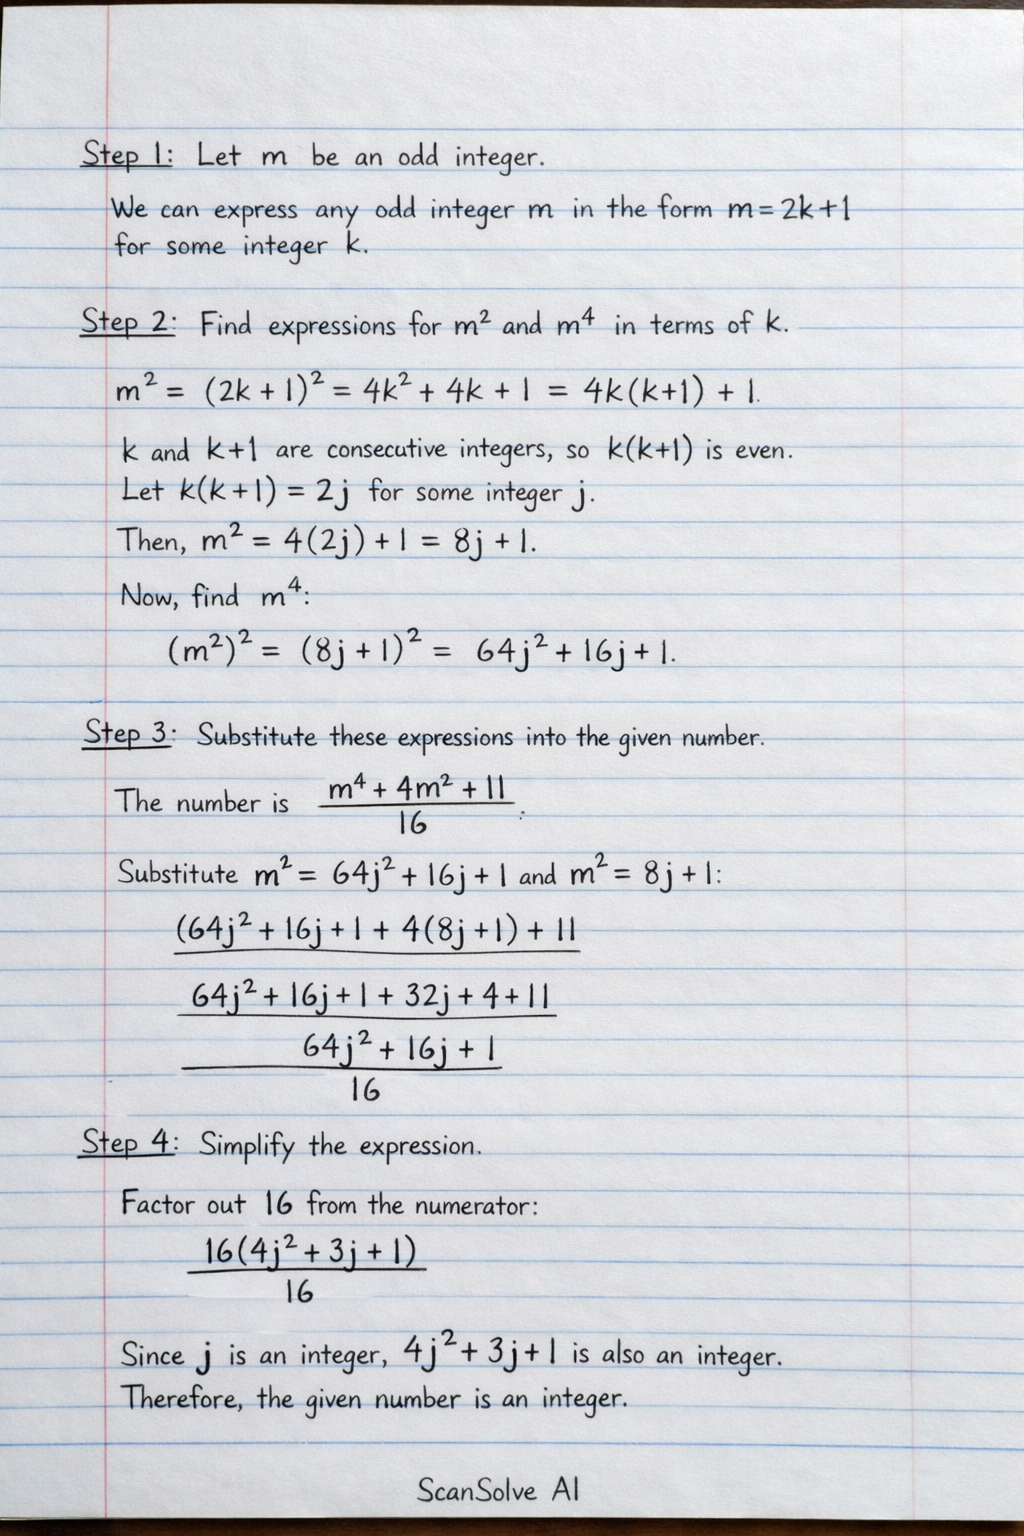 Step 1: Let m be an odd integer.
We can express any odd integer m in the form m = 2k+1
for some integer k.
Step 2: Find expressions for m² and m⁴ in terms of k.
m² = (2k + 1)² = 4k² + 4k + 1 = 4k(k+1) + 1.
k and k+1 are consecutive integers, so k(k+1) is even.
Let k(k+1) = 2j for some integer j.
Then, m² = 4(2j) + 1 = 8j + 1.
Now, find m⁴:
(m²)² = (8j + 1)² = 64j² + 16j + 1.
Step 3: Substitute these expressions into the given number.
The number is m⁴ + 4m² + 11
16.
Substitute m² = 64j² + 16j + 1 and m² = 8j + 1:
(64j² + 16j + 1 + 4(8j + 1) + 11
64j² + 16j + 1 + 32j + 4 + 11
64j² + 16j + 1
16
Step 4: Simplify the expression.
Factor out 16 from the numerator:
16(4j² + 3j + 1)
16
Since j is an integer, 4j² + 3j + 1 is also an integer.
Therefore, the given number is an integer.
ScanSolve AI